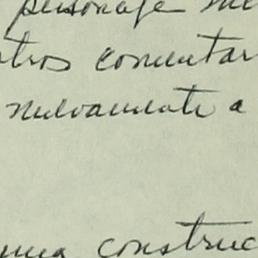 personaje me
tros comentar
nuevamente a
una construc